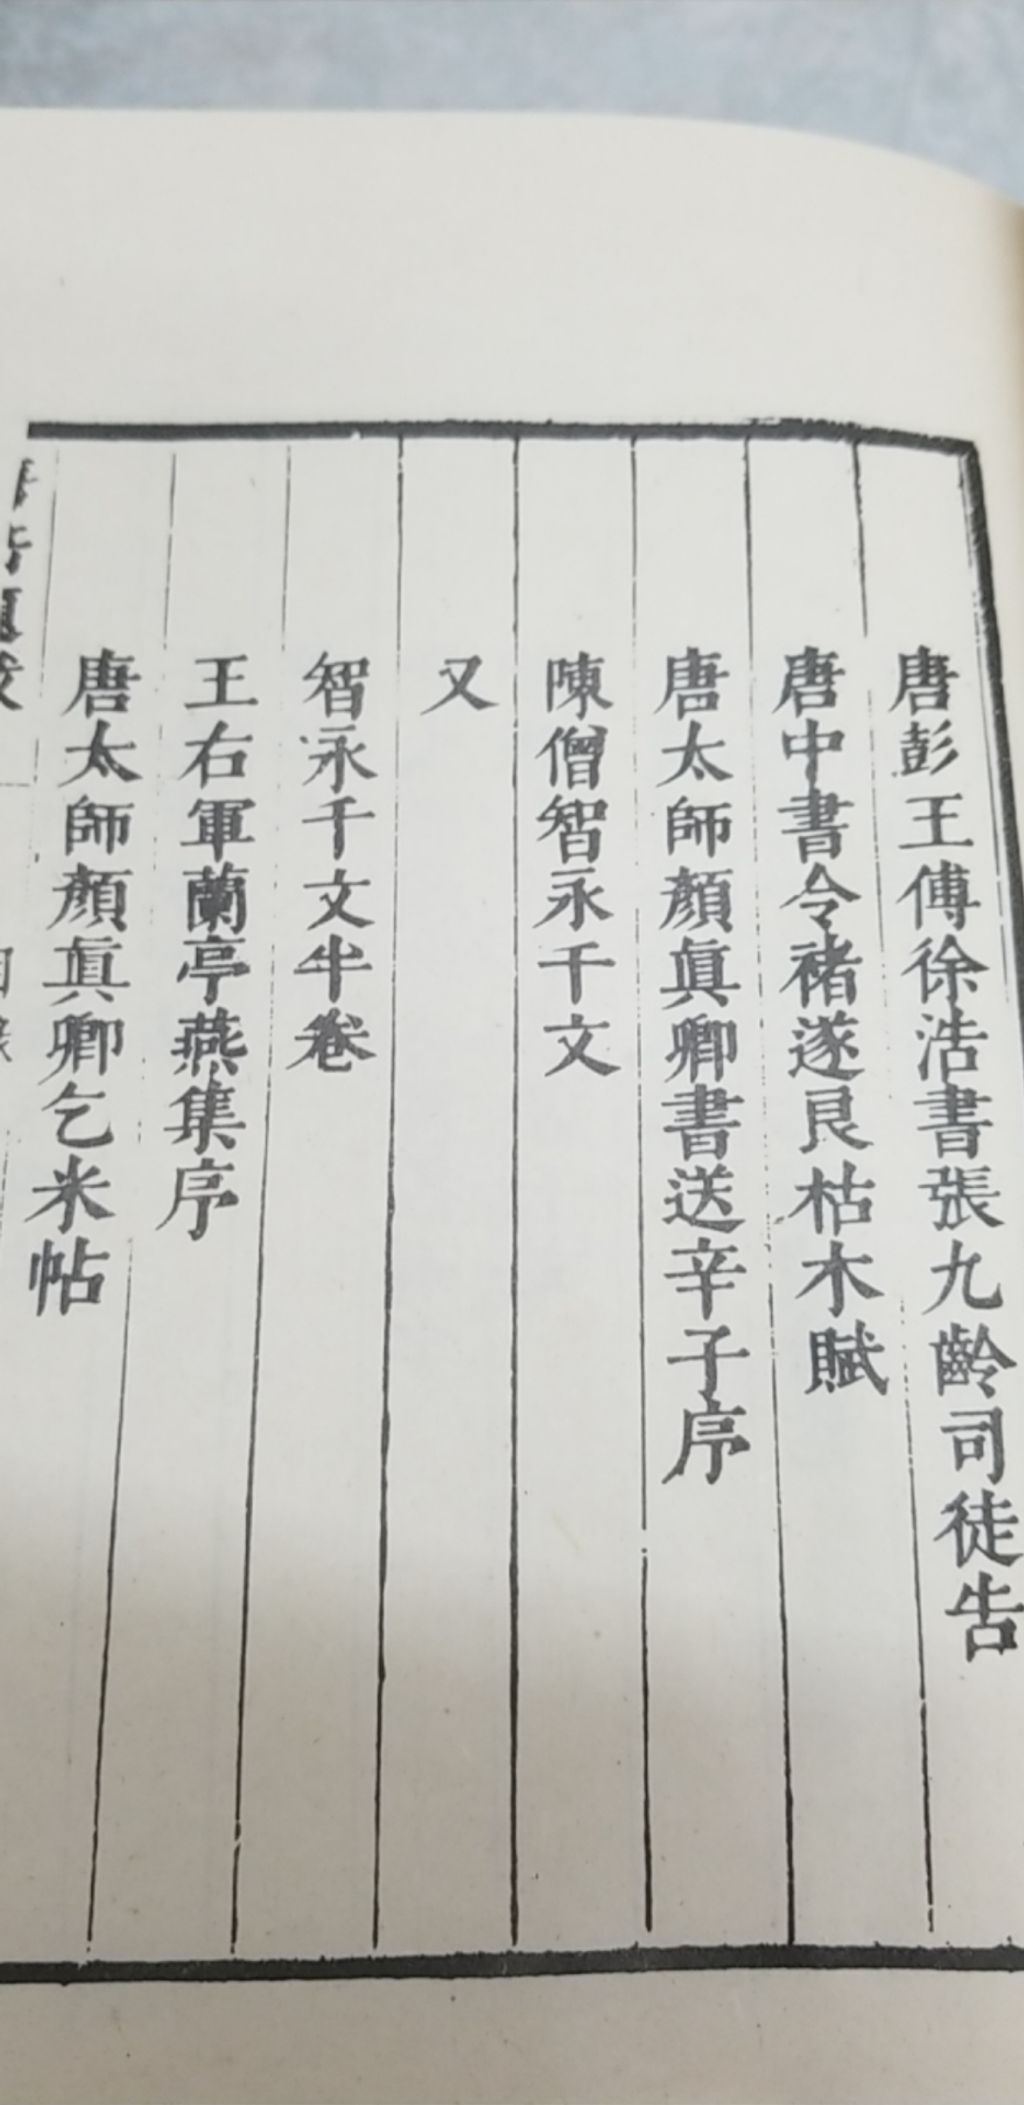 唐彭王傅徐浩書張九齡司徒告
唐中書令褚遂良枯木賦
唐太師顏眞卿書送辛子序
陳僧智永千文
又
智永千文半卷
王右軍蘭亭燕集序
唐太師顏眞卿乞米帖